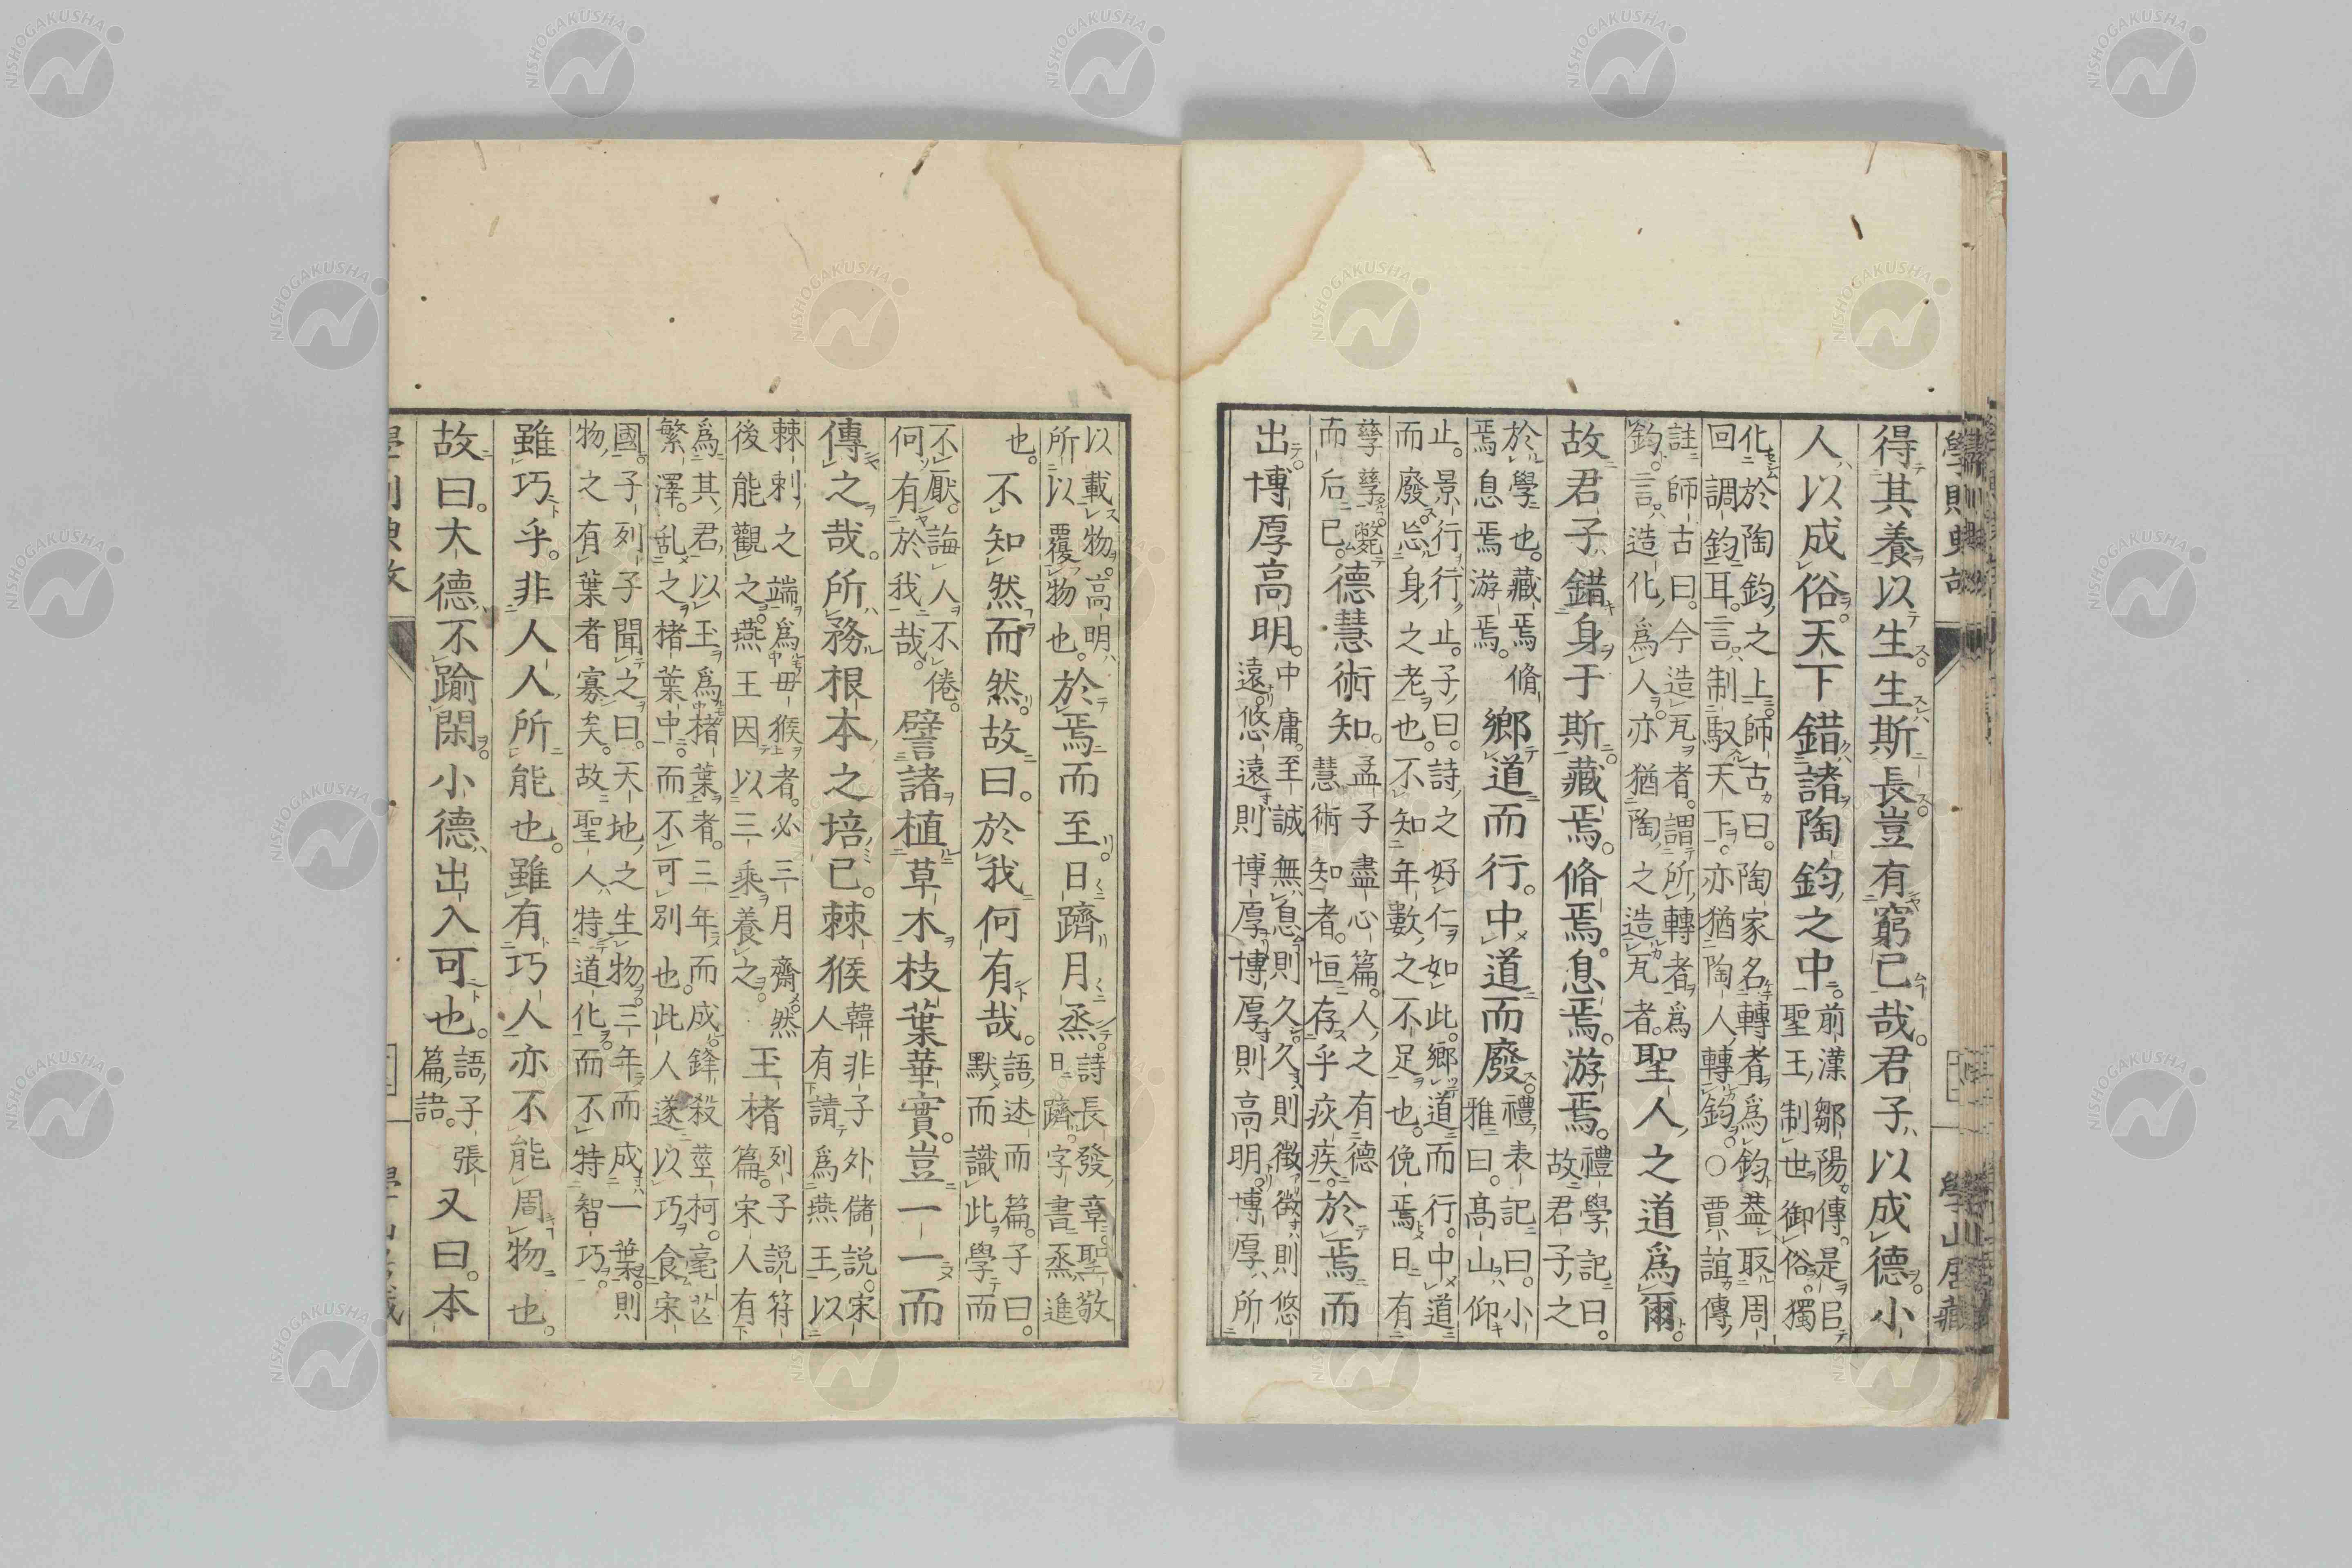 學則典故
學山居藏
得其養以生生斯長豈有窮已哉。君子以成德。小
人以成俗。天下錯諸陶鈞之中。前漢鄒陽傳。是㠯
聖王制世御俗。獨
化於陶鈞之上。師古曰。陶家名轉者爲鈞葢取周
回調鈞耳。言制馭天下。亦猶陶人轉鈞。○賈誼傳
註師古曰。今造瓦者。謂所轉者爲
鈞。言造化爲人。亦猶陶之造瓦者。聖人之道爲爾。
故君子錯身于斯。藏焉。脩焉。息焉。游焉。禮學記曰。
故君子之
於學也。藏焉脩
焉息焉游焉。鄉道而行。中道而廢。禮表記曰。小
雅曰。高山仰
止。景行行止。子曰。詩之好仁如此。鄉道而行。中道
而廢。忘身之老也。不知年數之不足也。俛焉日有
孳孳斃
而后已。德慧術知。孟子盡心篇。人之有德
慧術知者。恒存乎疢疾。於焉而
出。博厚高明。中庸。至誠無息則久。久則徵徵則悠
遠。悠遠則博厚博厚則高明。博厚所
以載物。高明
所以覆物也。於焉而至。日躋月烝。詩長發章。聖敬
日躋。字書烝進
也。不知然而然。故曰。於我何有哉。語述而篇。子曰。
默而識此學而
不厭。誨人不倦。
何有於我哉。譬諸植草木枝葉華實。豈一一而
傳之哉。所務根本之培已。棘猴韓非子外儲説。宋
人有請爲燕王以
棘刺之端爲母猴者。必三月齋。然
後能觀之。燕王因以三乘養之。玉楮列子説符
篇。宋人有
爲其君以玉爲楮葉者。三年而成。鋒殺莖柯。毫芒
繁澤。乱之楮葉中。而不可別也。此人遂以巧食宋
國。子列子聞之曰。天地之生物。三年而成一葉。則
物之有葉者寡矣。故聖人特道化。而不特智巧。
雖巧乎。非人人所能也。雖有巧人亦不能周物也。
故曰。大德不踰閑。小德出入可也。語子張
篇語。又曰。本